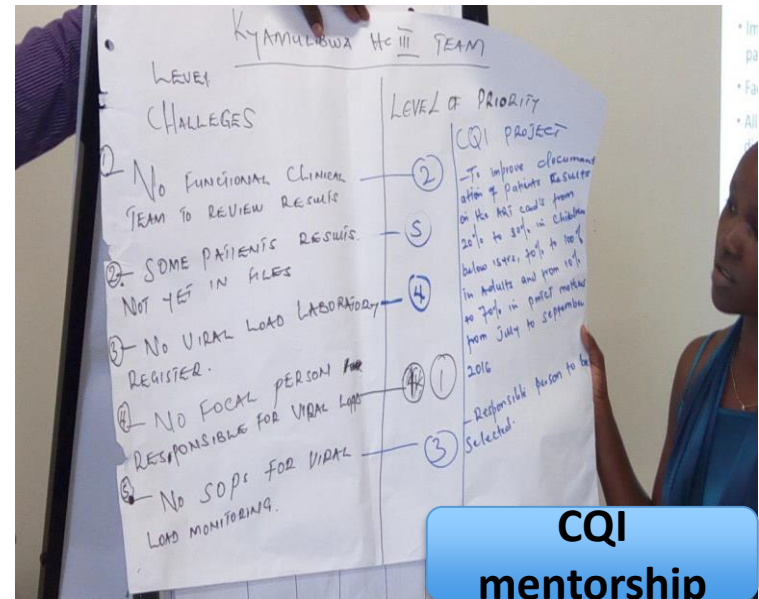 KYAMULIBWA HC III TEAM
LEVEL
CHALLEGES
① No FUNCTIONAL CLINICAL
TEAM TO REVIEW RESULTS
② SOME PATIENTS RESULTS
NOT YET IN FILES
③ No VIRAL LOAD LABORATORY
REGISTER.
④ NO FOCAL PERSON FOR
RESPONSIBLE FOR VIRAL LOAD
⑤ No SOPs FOR VIRAL
LOAD MONITORING.
LEVEL OF PRIORITY
②
⑤
④
①
③
CQI PROJECT
- To improve document
ation of patients Results
on the ART card's from
20% to 80% in children
below 15yrs, 70% to 100%
in Adults and from 10%
to 70% in pmtct mothers
from July to September
2016
- Responsible person to be
Selected.
• Im
pa
• Fac
• All
CQI
mentorship